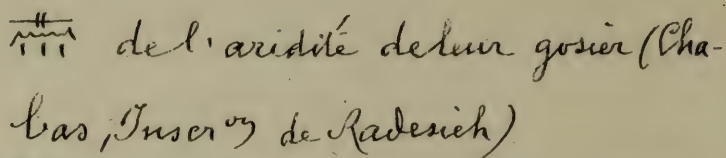 de l'aridité de leur gosier (Cha-
bas, Inscr.on de Radesieh)